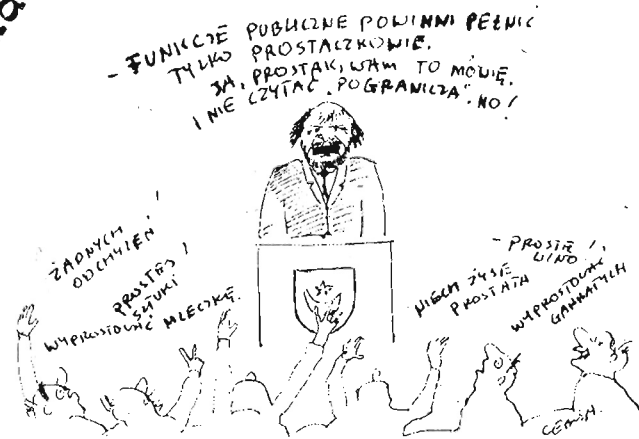 - FUNKCJE PUBLICZNE POWINNI PEŁNIĆ
TYLKO PROSTACZKOWIE.
JA, PROSTAK, WAM TO MÓWIĘ.
I NIE CZYTAĆ „POGRANICZA". NO!
ŻADNYCH
ODCHYLEŃ!
PROSTEJ
SZTUKI!
WYPROSTOWAĆ MLECZKĘ.
NIECH ŻYJE
PROSTATA
- PROSTE!,
WINO
WYPROSTOWAĆ
GARBATYCH